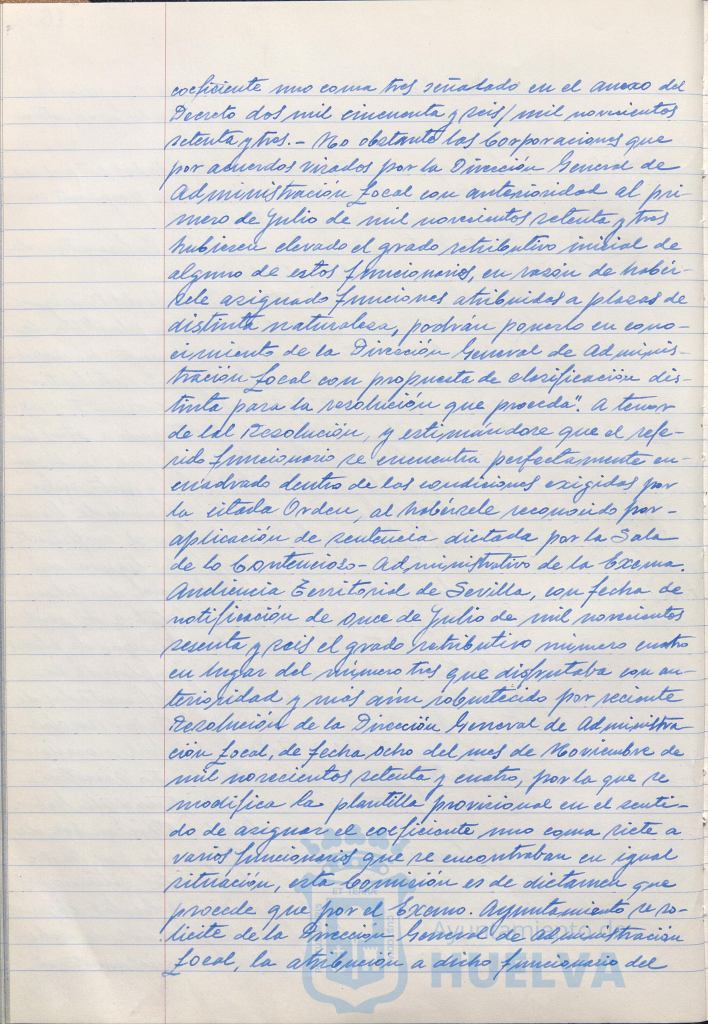 coeficiente uno coma tres señalado en el anexo del
Decreto dos mil cincuenta y seis/mil novecientos
setenta y tres.- No obstante las Corporaciones que
por acuerdos visados por la Dirección General de
Administración Local con anterioridad al pri-
mero de Julio de mil novecientos setenta y tres
hubiesen elevado el grado retributivo inicial de
alguno de estos funcionarios, en razón de habér-
sele asignado funciones atribuidas a plazas de
distinta naturaleza, podrán ponerlo en cono-
cimiento de la Dirección General de Adminis-
tración Local con propuesta de clasificación dis-
tinta para la resolución que proceda". A tenor
de tal Resolución, y estimándose que el refe-
rido funcionario se encuentra perfectamente en-
cuadrado dentro de las condiciones exigidas por
la citada Orden, al habérsele reconocido por-
aplicación de sentencia dictada por la Sala
de lo Contencioso-Administrativo de la Excma.
Audiencia Territorial de Sevilla, con fecha de
notificación de once de Julio de mil novecientos
sesenta y seis el grado retributivo número cuatro
en lugar del número tres que disfrutaba con an-
terioridad y más aún robustecido por reciente
Resolución de la Dirección General de Administra-
ción Local, de fecha ocho del mes de Noviembre de
mil novecientos setenta y cuatro, por la que se
modifica la plantilla provisional en el senti-
do de asignar el coeficiente uno coma siete a
varios funcionarios que se encontraban en igual
situación, esta Comisión es de dictamen que
procede que por el Excmo. Ayuntamiento se so-
licite de la Dirección General de Administración
Local, la atribución a dicho funcionario del
Ayuntamiento de
HUELVA